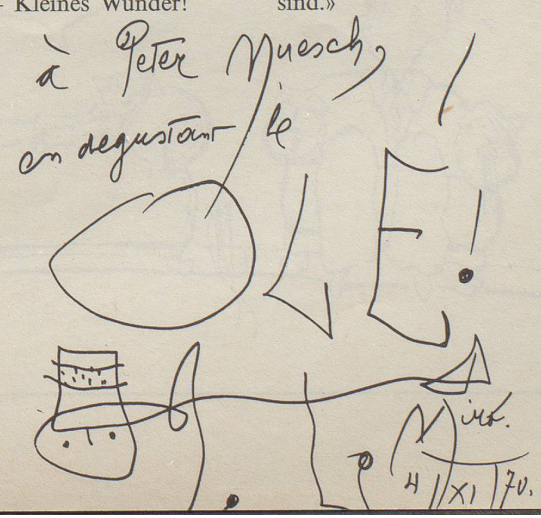 - Kleines Wunder! sind.»
à Peter Nuesch,
en degustant le
OLÉ!
Miró.
4/XI/70.